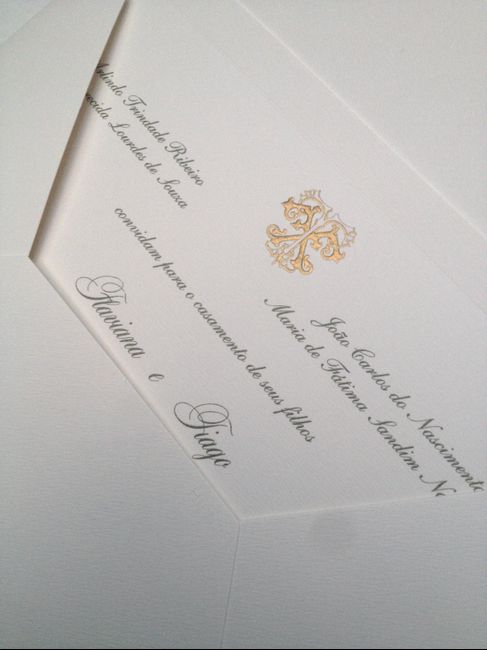 Arlindo Trindade Ribeiro
Lourdes de Souza
João Carlos do Nascimento
Maria de Fátima Sandim
convidam para o casamento de seus filhos
Flaviana e Tiago